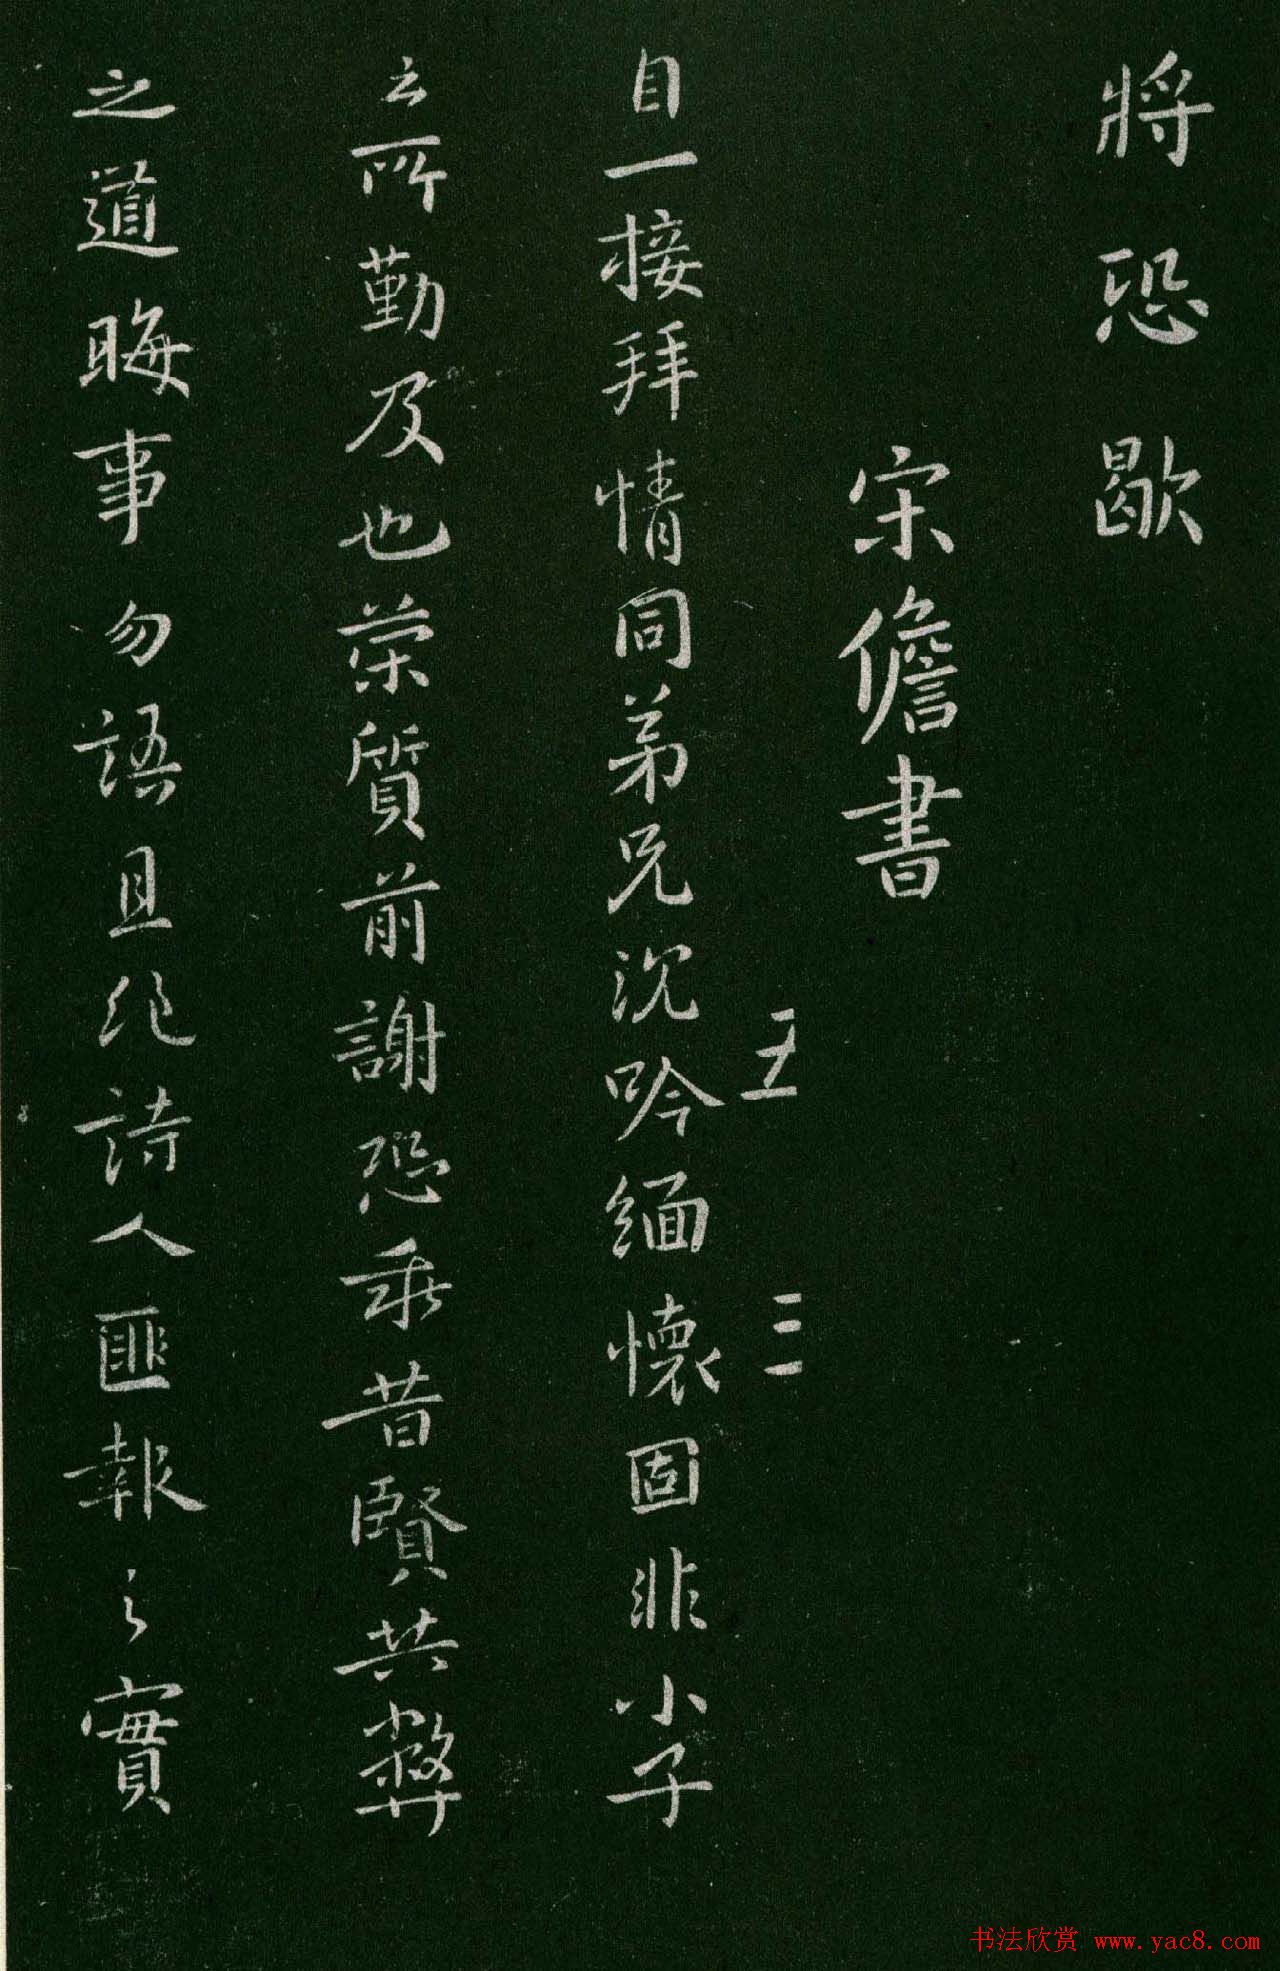 將恐歇
宋儋書
五 三
自一接拜情同弟兄沈吟緬懷固非小子
云所勤及也荣質前謝恐乖昔賢共弊
之道晦事勿語且絕詩人匪報之實
书法欣赏 www.yac8.com